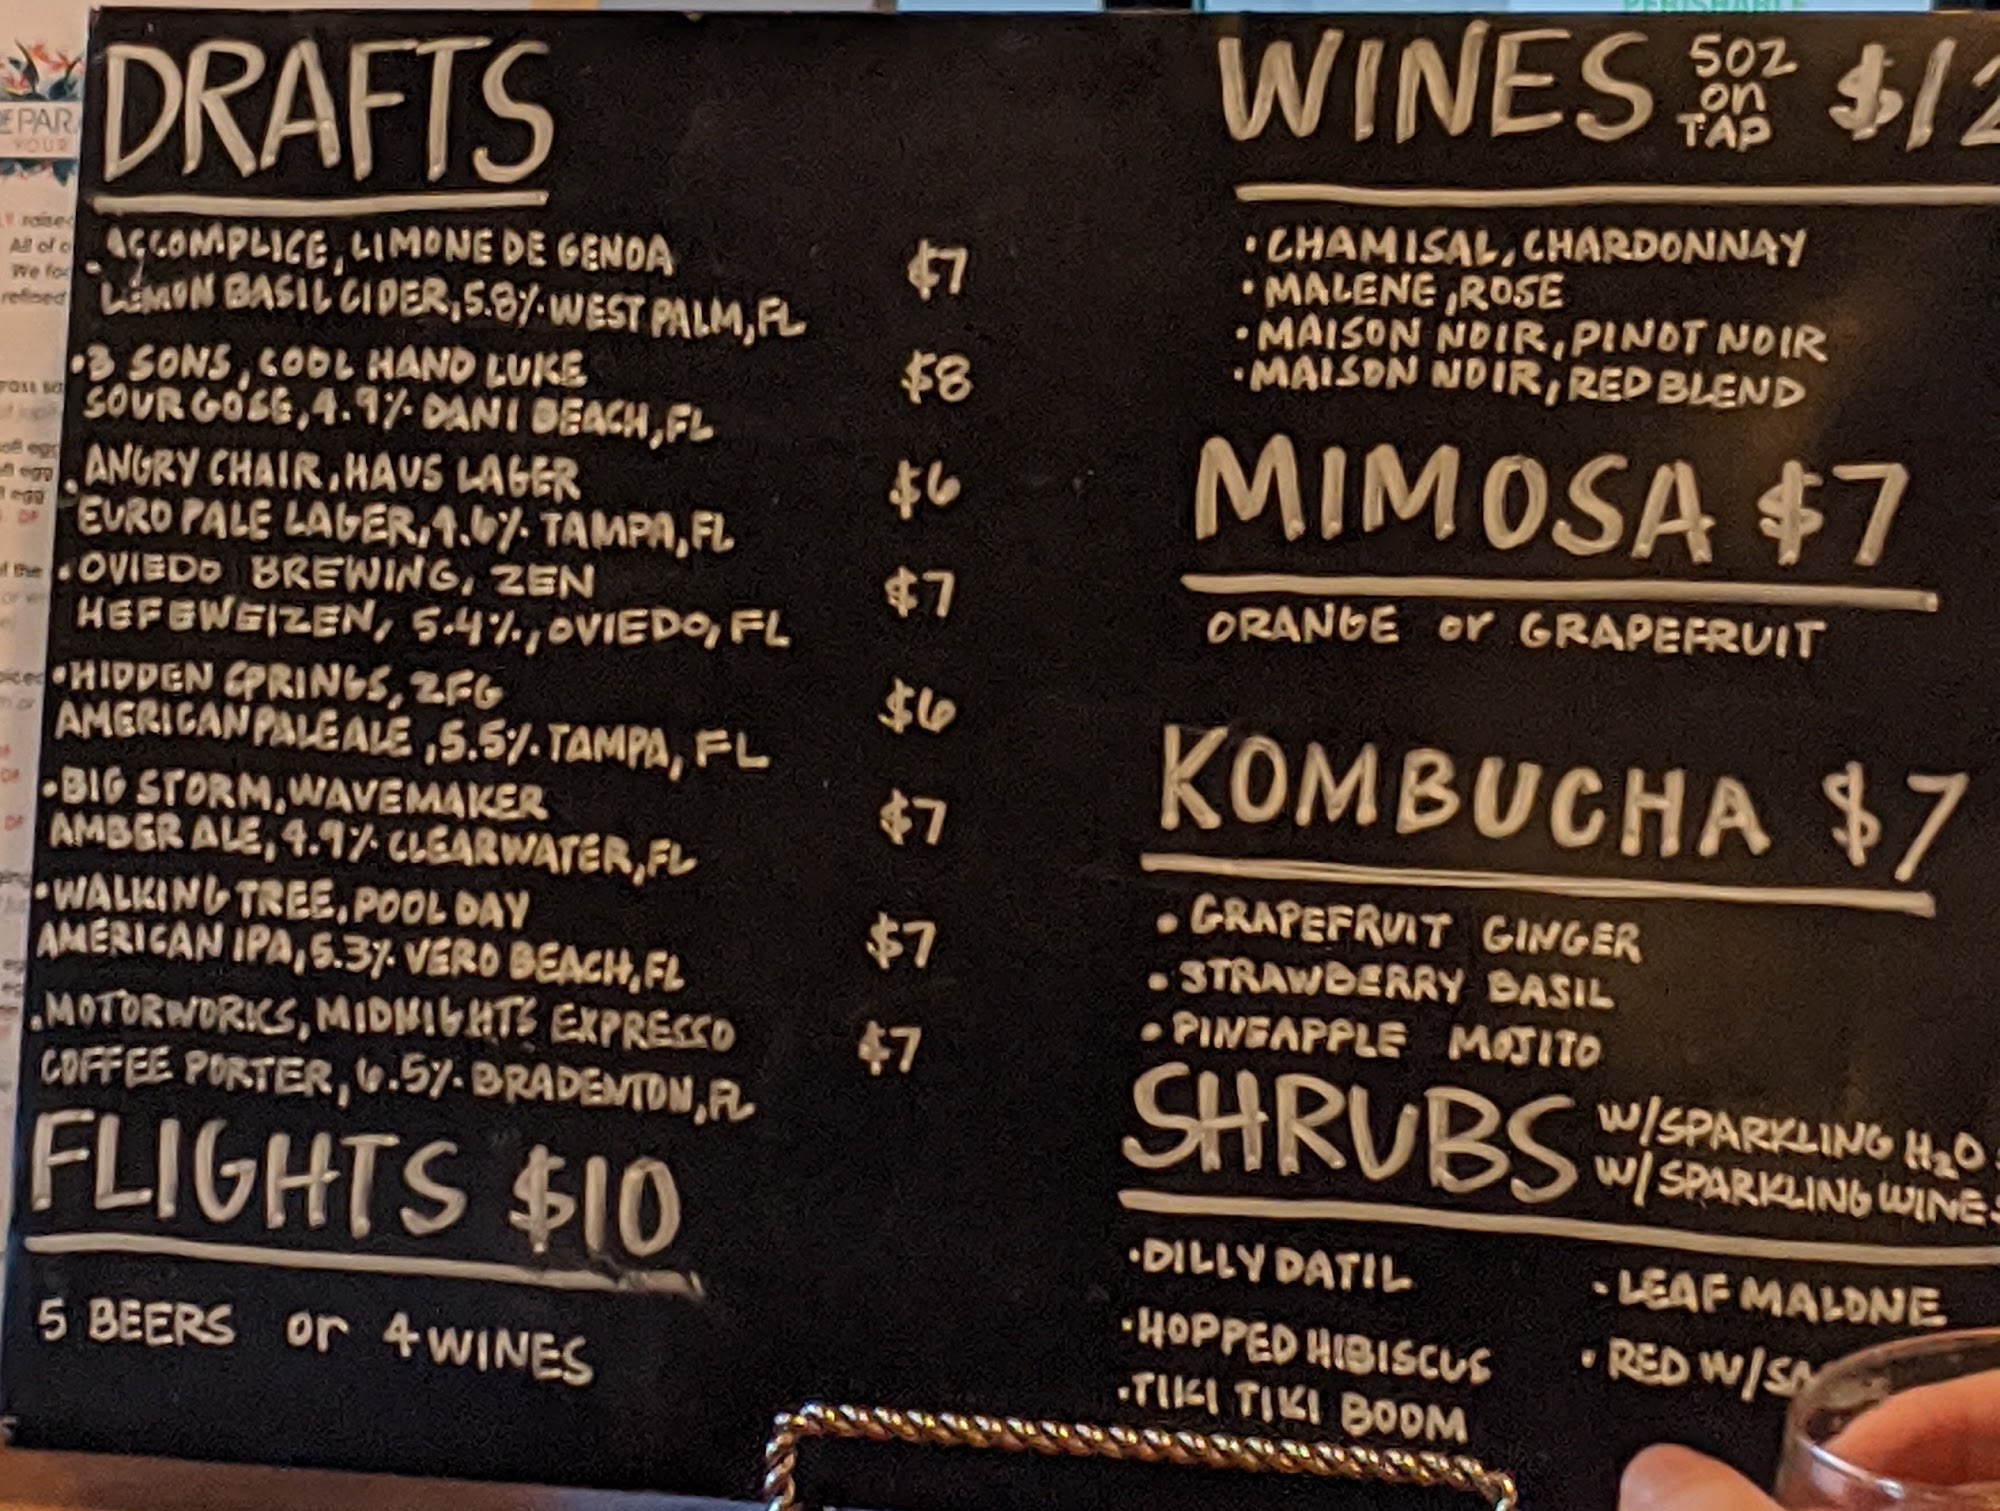 DRAFTS
ACCOMPLICE, LIMONE DE GENOA $7
LEMON BASIL CIDER, 5.8% WEST PALM, FL
• 3 SONS, COOL HAND LUKE $8
SOUR GOSE, 4.9% DANI BEACH, FL
ANGRY CHAIR, HAUS LAGER $6
EURO PALE LAGER, 4.6% TAMPA, FL
• OVIEDO BREWING, ZEN $7
HEFEWEIZEN, 5.4%, OVIEDO, FL
• HIDDEN SPRINGS, ZFG $6
AMERICAN PALE ALE, 5.5% TAMPA, FL
• BIG STORM, WAVEMAKER $7
AMBER ALE, 4.9% CLEARWATER, FL
• WALKING TREE, POOL DAY $7
AMERICAN IPA, 5.3% VERO BEACH, FL
• MOTORWORKS, MIDNIGHTS EXPRESSO $7
COFFEE PORTER, 6.5% BRADENTON, FL
FLIGHTS $10
5 BEERS or 4 WINES
WINES 5OZ on TAP $12
• CHAMISAL, CHARDONNAY
• MALENE, ROSE
• MAISON NOIR, PINOT NOIR
• MAISON NOIR, RED BLEND
MIMOSA $7
ORANGE or GRAPEFRUIT
KOMBUCHA $7
• GRAPEFRUIT GINGER
• STRAWBERRY BASIL
• PINEAPPLE MOJITO
SHRUBS W/SPARKLING H2O
W/SPARKLING WINE
• DILLY DATIL
• HOPPED HIBISCUS
• TIKI TIKI BOOM
• LEAF MALONE
• RED W/SA
PERISHABLE